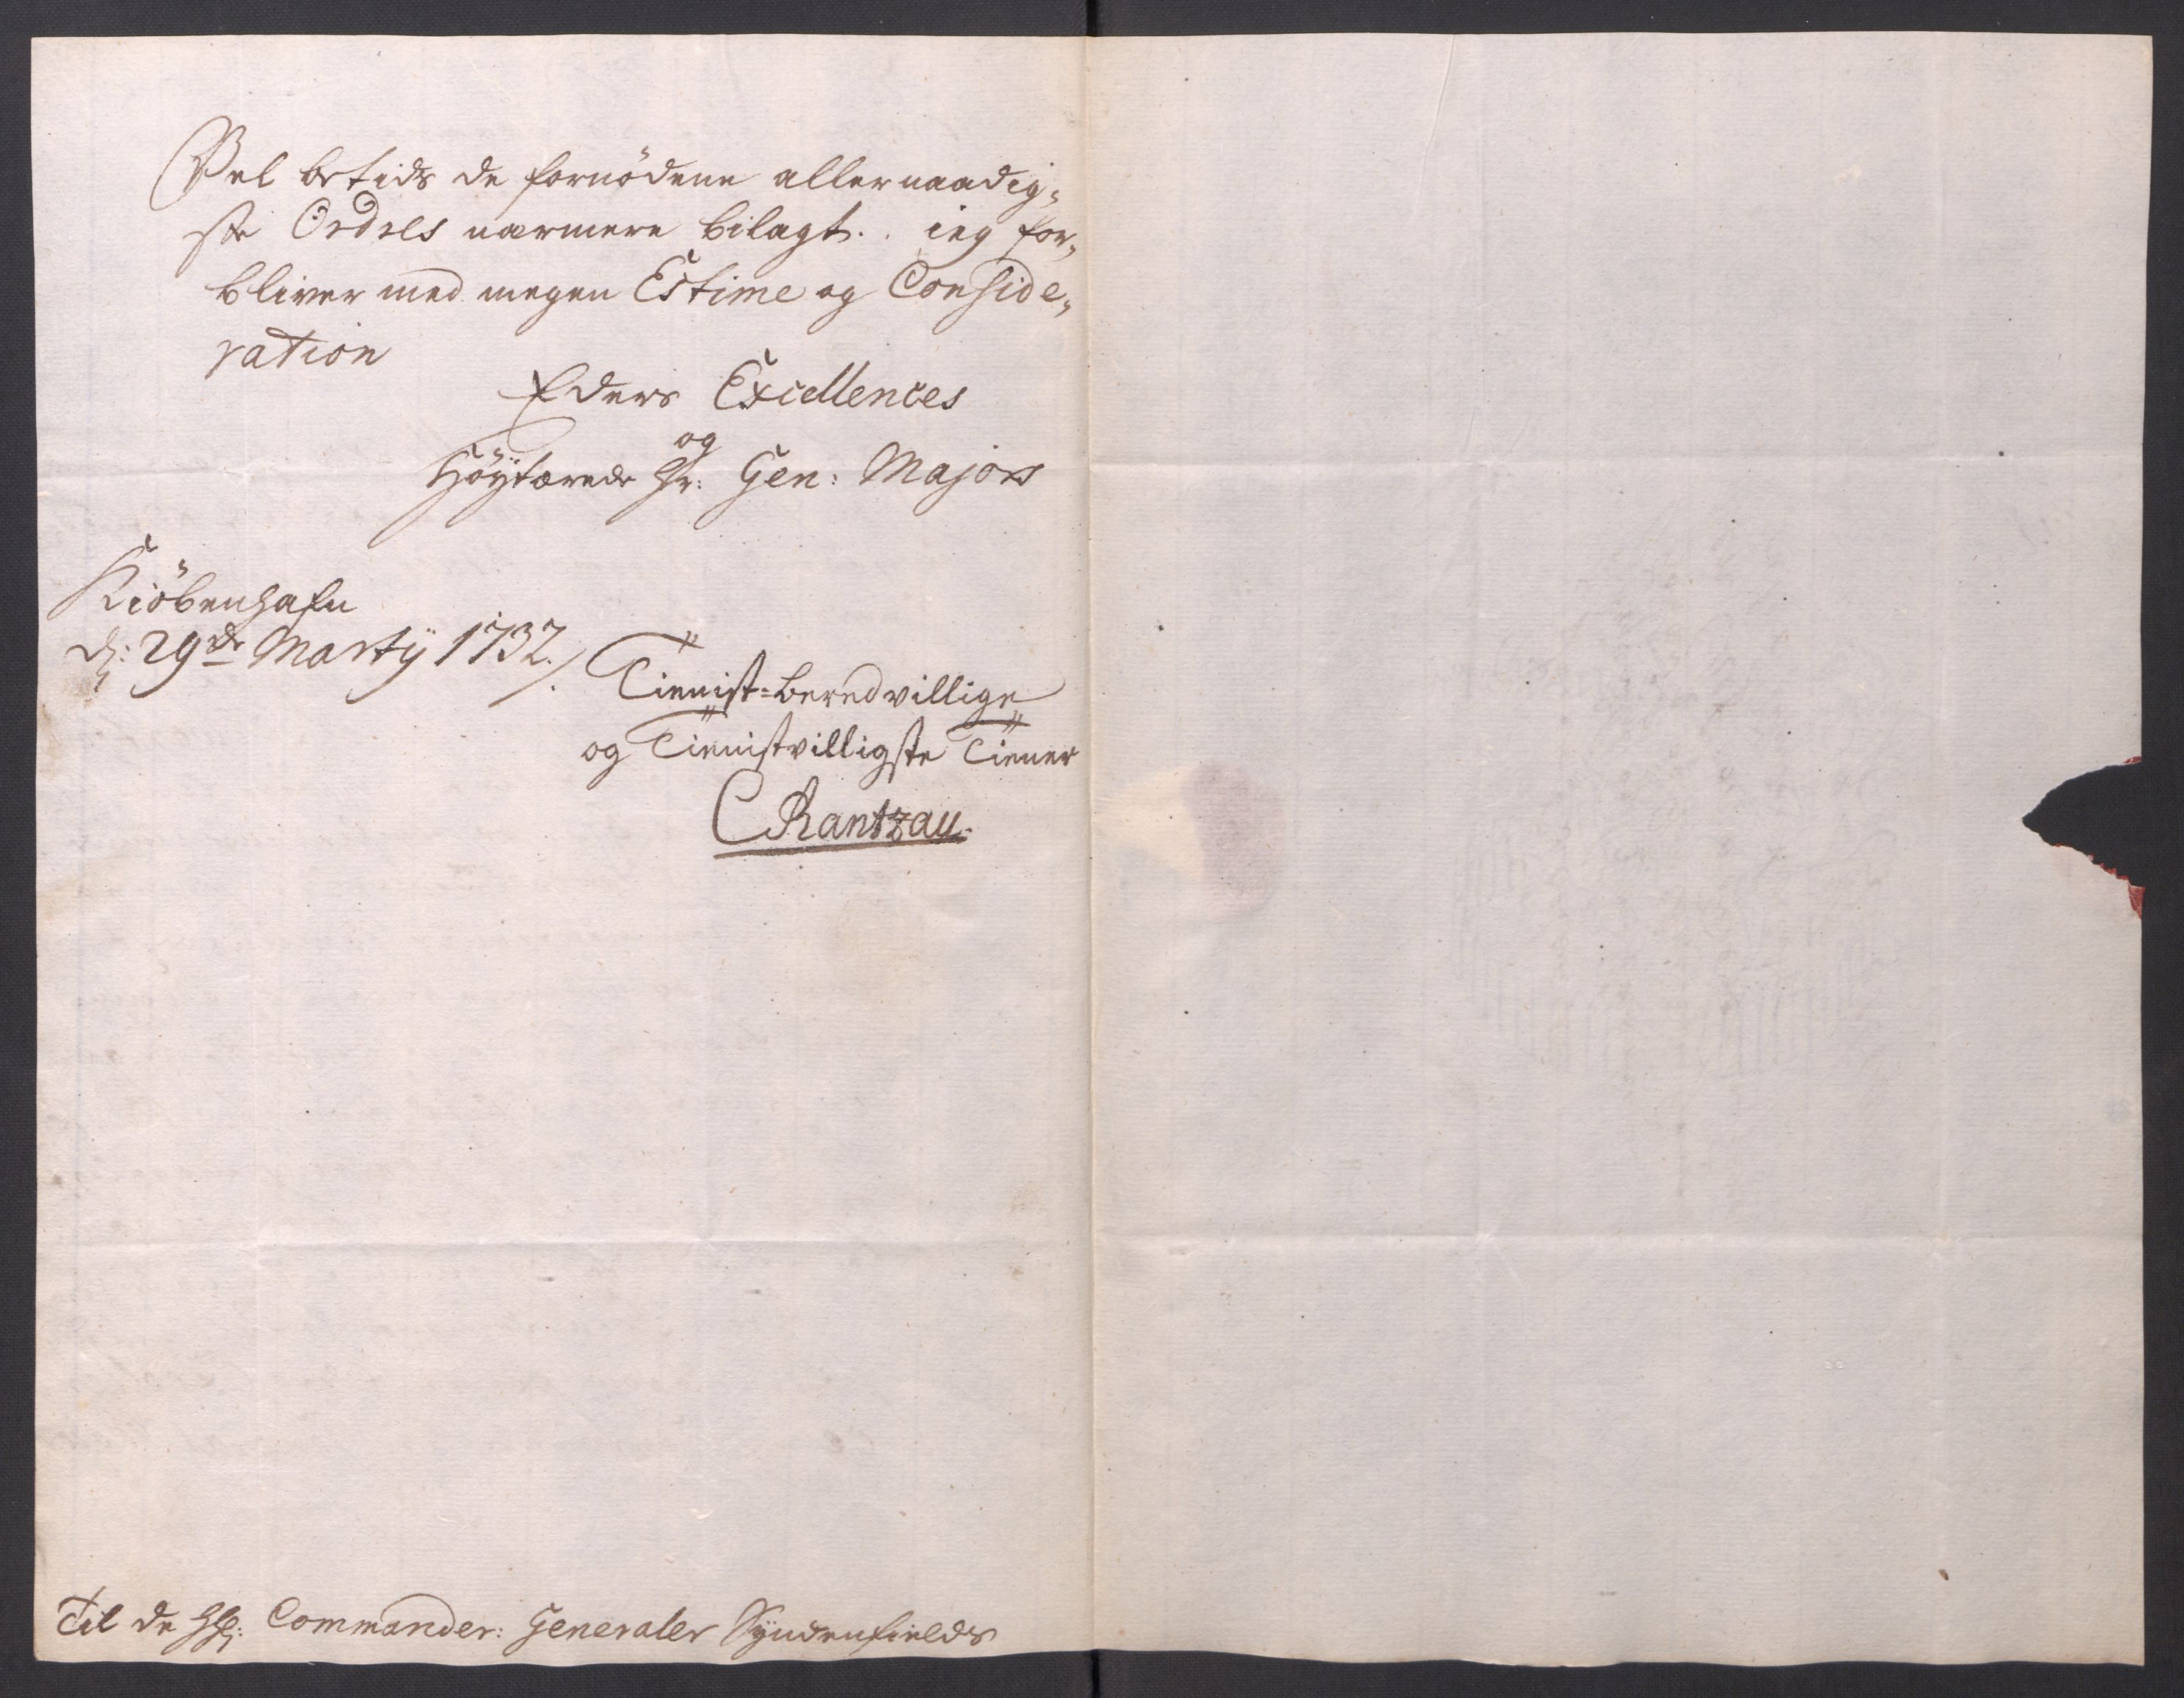 Vel betids de fornødene allernaadig-
ste Ordres nærmere bilagt. ieg for-
bliver med megen Estime og Conside-
ration
Eders Excellences
og
Høÿtærede Hr: Gen: Majors
Kiöbenhafn
d: 29de Martÿ 1732.
Tienist-beredvillige
og Tienistvilligste Tiener
CRantzau.
Til de HH: Commander: Generaler Sÿndenfields